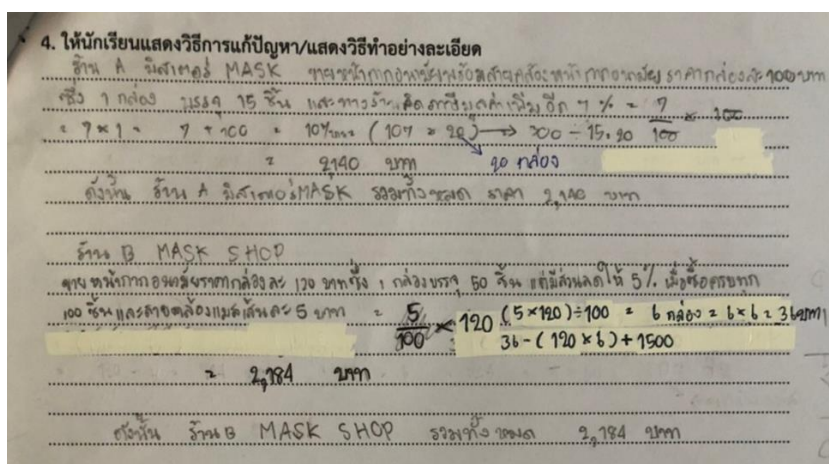 4. ให้นักเรียนแสดงวิธีการแก้ปัญหา/แสดงวิธีทำอย่างละเอียด
ร้าน A มิสเตอร์ MASK ขายหน้ากากอนามัยพร้อมสายคล้องหน้ากากอนามัย ราคากล่องละ 100 บาท
ซึ่ง 1 กล่อง บรรจุ 15 ชิ้น และทางร้านคิดภาษีมูลค่าเพิ่มอีก 7 % = 7/100 × 100
= 7 × 1 = 7 + 100 = 107 บาท (107 × 20) → 300 ÷ 15 = 20
= 2,140 บาท 20 กล่อง
ดังนั้น ร้าน A มิสเตอร์ MASK รวมทั้งหมด ราคา 2,140 บาท
ร้าน B MASK SHOP
ขายหน้ากากอนามัยราคากล่องละ 120 บาทซึ่ง 1 กล่องบรรจุ 50 ชิ้น แต่มีส่วนลดให้ 5% เมื่อซื้อครบทุก
100 ชิ้นและสายคล้องแมสเส้นละ 5 บาท = 5/100 × 120 (5 × 120) ÷ 100 = 6 กล่อง = 6 × 6 = 36 บาท
36 - (120 × 6) + 1500
= 2,184 บาท
ดังนั้น ร้าน B MASK SHOP รวมทั้งหมด 2,184 บาท